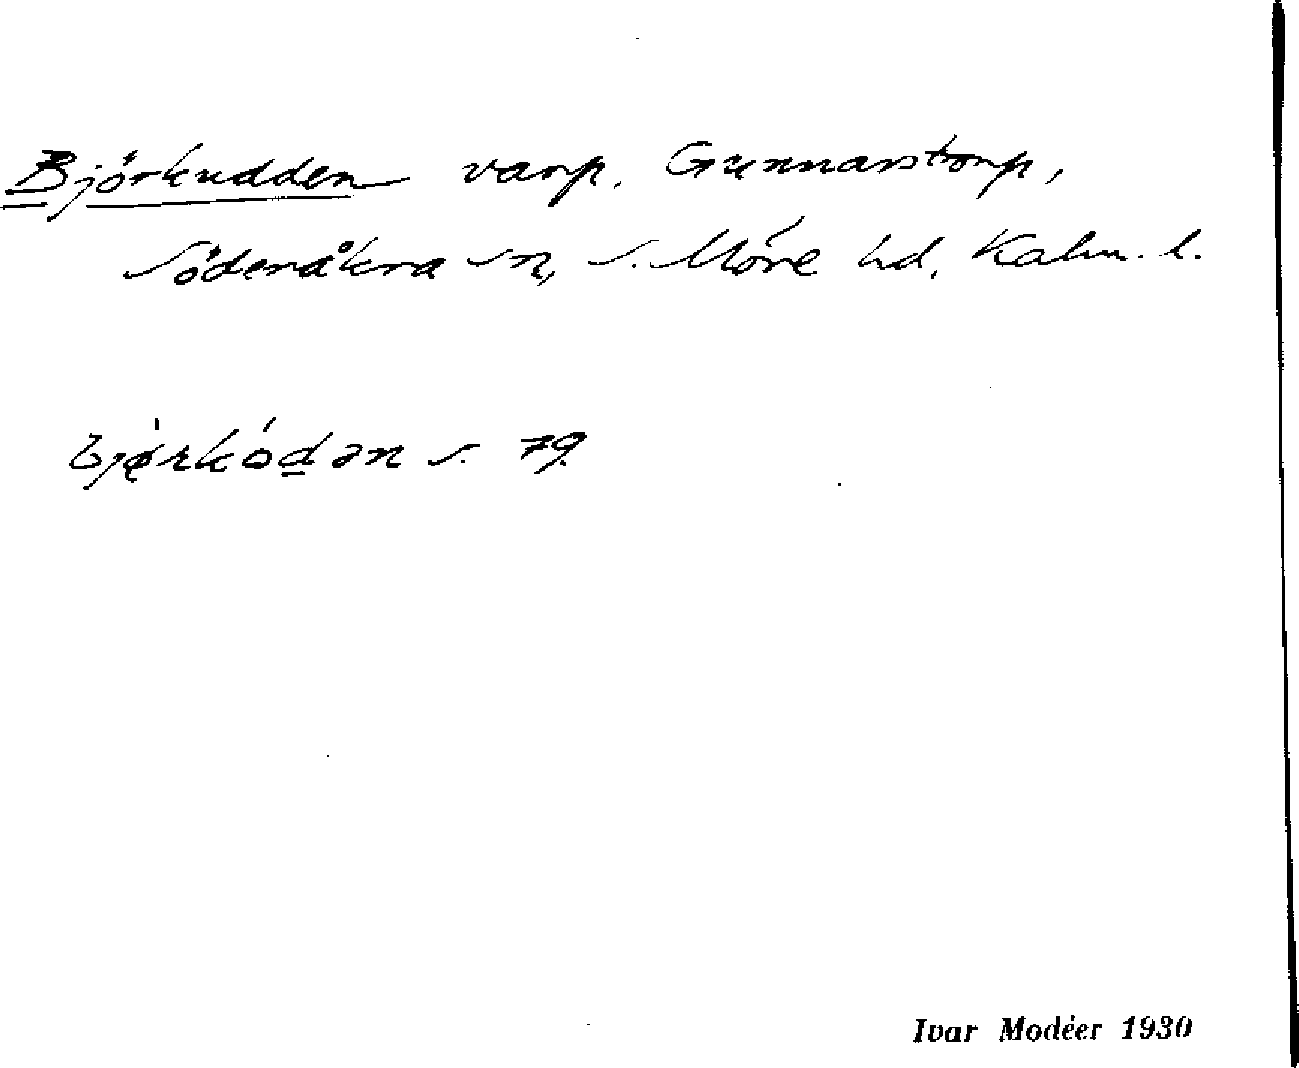 Björkudden varp. Gunnarstorp,
Söderåkra sn, S. Möre hd, Kalm. l.
bjørkódən s. 79.
Ivar Modéer 1930